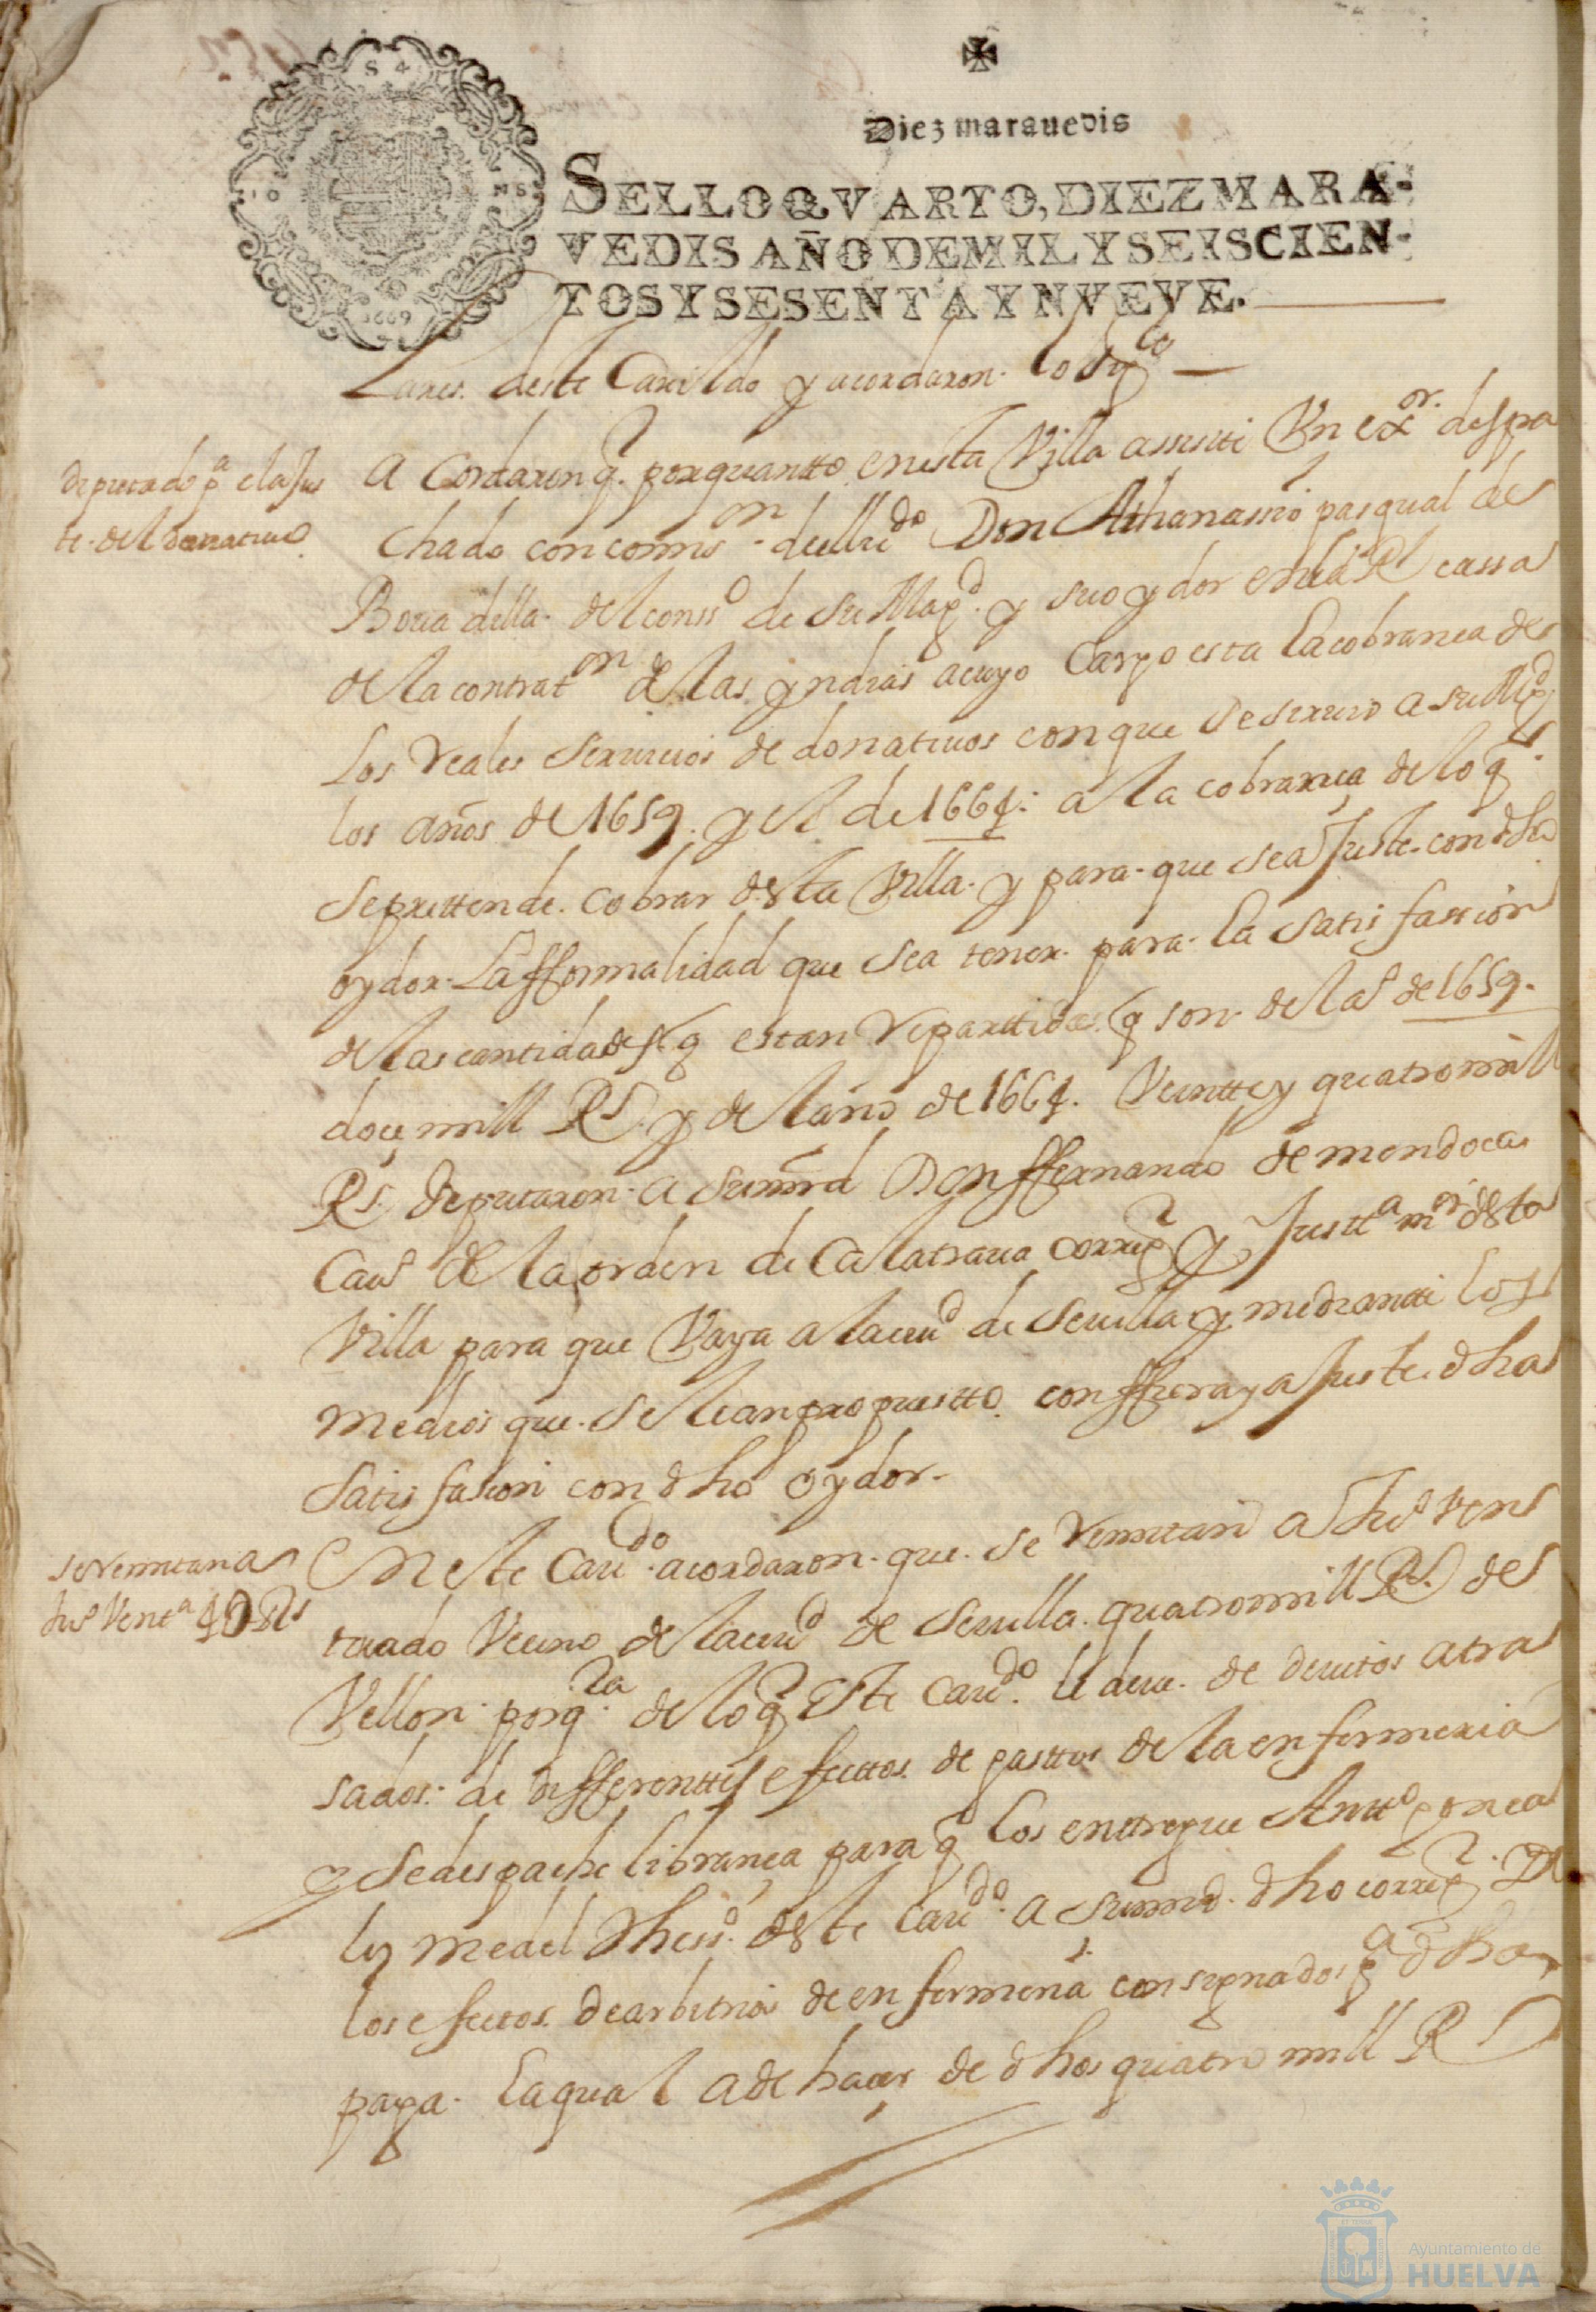 Diez marauedis
SELLO QVARTO, DIEZ MARA-
VEDIS AÑO DE MIL Y SEISCIEN-
TOS Y SESENTA Y NVEVE.
S 4
1669
Lares. deste Cavildo y acordaron. lo sigte
diputado pa el ajus
te. del donativo
Acordaron q. porquantto en esta Villa assiste Vn exor. despa
chado con comison. del lizdo Don Athanassio pasqual de
Bouadilla. del conso de su Magd. y su oydor en la Rl cassa
de la contraton de las yndias a cuyo Cargo esta la cobranca de
los reales seruicios de donatiuos con que se siruio a su Mgd
los años de 1659. y el de 1664. a la cobrança de lo q.
se prettende. cobrar desta Villa. y para. que sea Juste. con dho
oydor. La fformalidad que sea tener. para. la satisfassion
de las cantidades. q estan Reparttidas. q son. del as de 1659.
doçe mill Rs. y del año de 1664. Veintte y quatro mill
Rs. deputaron. a su mrd Don ffernando de mendoca
Cauo de la orden de Calatraua correg y Justta mor desta
Villa para que Vaya a la ciud de Seuilla y mediante los
medios que. se le an propuestto. conffiera y a Juste. dha
satisfasion con dho oydor.
se Remitan a
Juo Venta 4D Rs
En este Caudo. acordaron. que. se Remitan a Juo Ven
turado Vecino de la ciud de Seuilla. quatro mill Rs. de
Vellon. por qta. de lo q Este Caudo. le deue. de deuitos atra
sados. de differenttes efecttos. de gasttos de la enfermeria
y se despache librança para q los enttregue Antto gonca
les medel thesso. deste Caudo. a su mrd. dho correg. De
los efectos. de arbitrios de enfermeria consignados pa dha
paga. la qual a de hacer de dhos quatro mill Rs
Ayuntamiento de
HUELVA